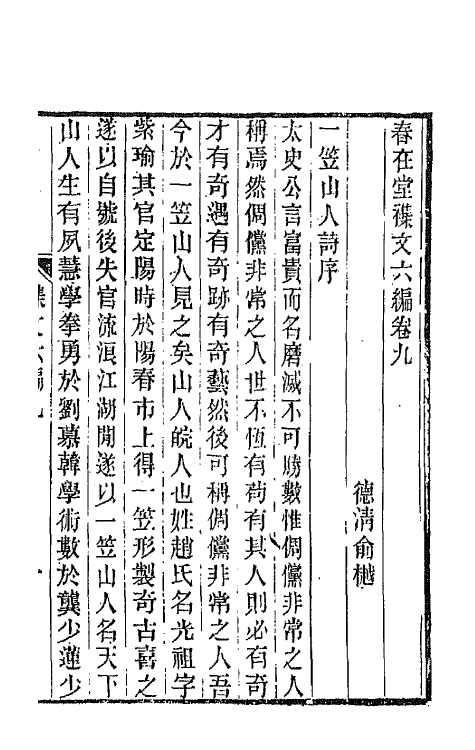 春在堂襍文六編卷九
德清俞樾
一笠山人詩序
太史公言富貴而名磨滅不可勝數惟倜儻非常之人
稱焉然倜儻非常之人世不恆有苟有其人則必有奇
才有奇遇有奇跡有奇藝然後可稱倜儻非常之人吾
今於一笠山人見之矣山人皖人也姓趙氏名光祖字
紫瑜其官定陽時於陽春市上得一笠形製奇古喜之
遂以自號後失官流滇江湖閒遂以一笠山人名天下
山人生有夙慧學拳勇於劉慕韓學術數於龔少蓮少